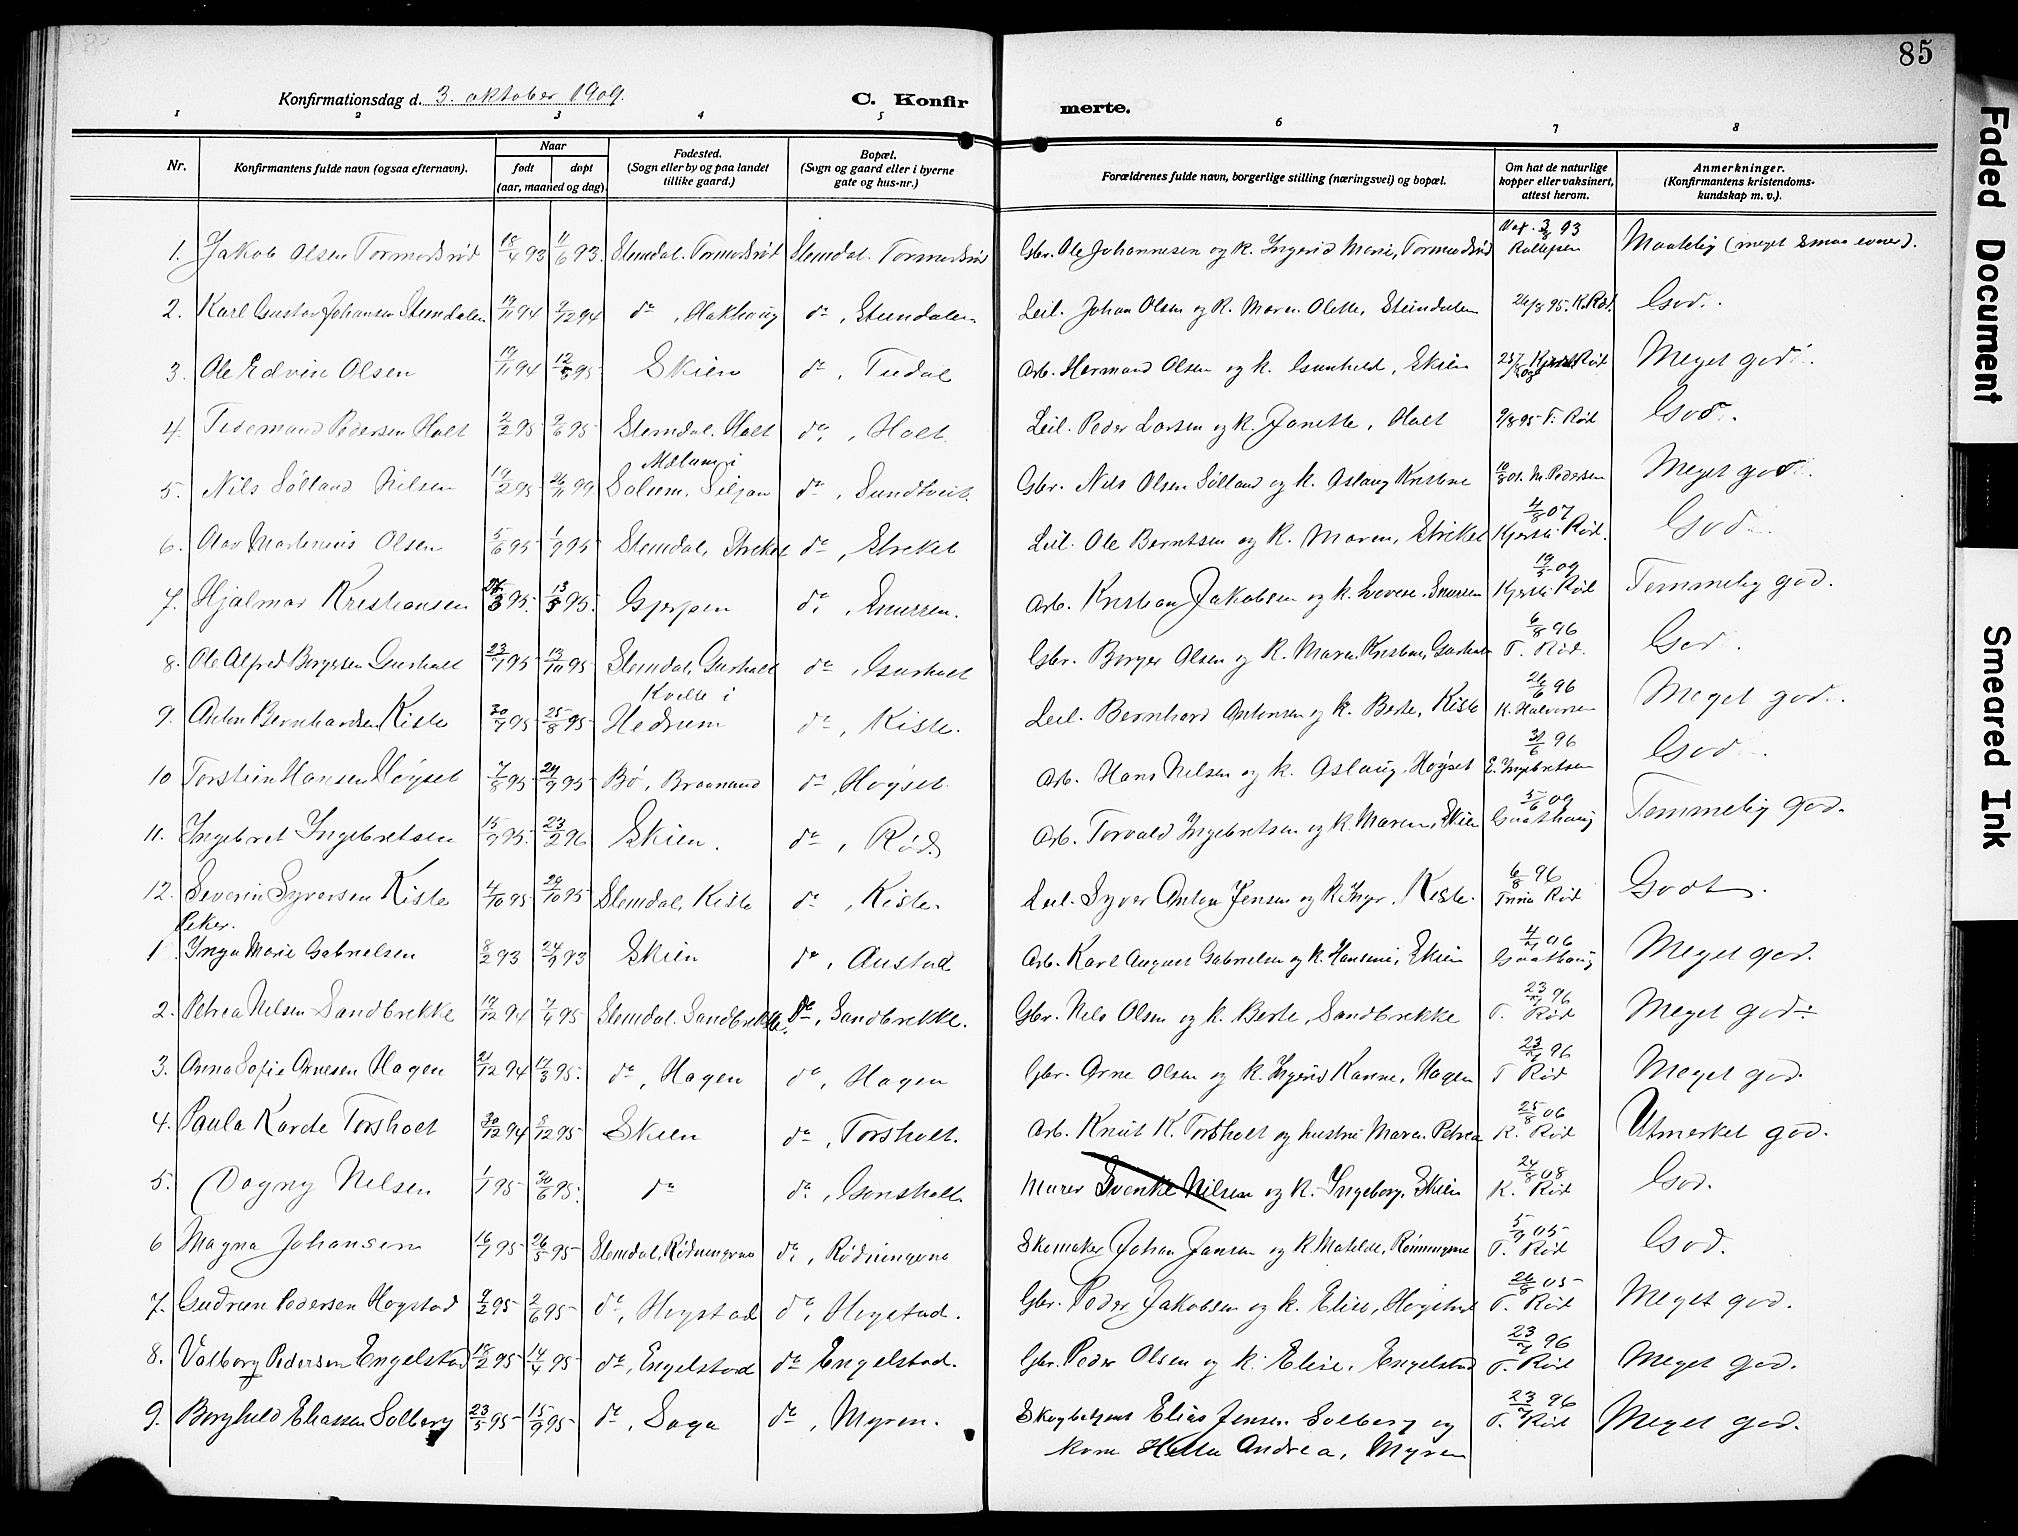 85
Konfirmationsdag d. 3. oktober 1909.
C. Konfirmerte.
1 2 3 4 5 6 7 8
Nr. Konfirmantens fulde navn (ogsaa efternavn). Naar født døpt (aar, maaned og dag). Fødested. (Sogn eller by og paa landet tillike gaard.) Bopæl. (Sogn og gaard eller i byerne gate og hus-nr.) Forældrenes fulde navn, borgerlige stilling (næringsvei) og bopæl. Om hat de naturlige kopper eller vaksinert, attest herom. Anmerkninger. (Konfirmantens kristendomskundskap m. v.).
1. Jakob Olsen Tormodsrød 18/4 93 11/6 93. Slemdal. Tormodsrød Slemdal. Tormodsrød Gbr. Ole Johannesen og k. Ingerid Marie, Tormodsrød 93 Maadelig (meget smaa evner).
2. Karl Gustav Johansen Stendalen 19/11 94 9/12 94 do, Hakhaug do, Stendalen Leil. Johan Olsen og k. Maren Olette, Stendalen 26/8 95. K. Rød. God.
3. Ole Edvin Olsen 19/11 94 12/5 95 Skien do, Tudal Arb. Hermand Olsen og k. Gunhild, Skien Rød Meget god.
4. Tidemand Pedersen Holt 2/2 95 9/6 95 Slemdal, Holt do, Holt Leil. Peder Larsen og k. Janette, Holt 9/8 95 T. Rød God.
5. Nils Sølland Nilsen 19/2 95 26/11 99 Mælum i Solum, Siljan do, Sundtveit. Gbr. Nils Olsen Sølland og k. Aslaug Kristine M. Pedersen Meget god.
6. Martinius Olsen 5/6 95 1/9 95 Slemdal, Streket do, Streket Leil. Ole Berntsen og k. Maren, Streket 4/8 07 Kjersti Rød. God
7. Hjalmar Kristiansen 3 95. 13/5 95. Gjerpen do, Snurren. Arb. Kristian Jakobsen og k. Lovise, Snurren 19/5 09 Kjersti Rød Temmelig god.
8. Ole Alfred Borgersen Gursholt 23/7 95 13/10 95 Slemdal, Gursholt do, Gursholt Gbr. Borger Olsen og k. Maren Kristine, Gursholt 6/8 96 T. Rød. God.
9. Anton Bernhardsen Kiste 30/7 95 25/8 95 Kvelle i Hedrum do, Kiste. Leil. Bernhard Antonsen og k. Berte, Kiste 26/6 96 K. Halvorsen Meget god.
10 Torstein Hansen Høyset 7/8 95 29/9 95 Bø, do, Høyset. Arb. Hans Nilsen og k. Aslaug, Høyset 96 E. Ingebretsen God.
11. Ingebret Ingebretsen 15/9 95. 23/2 96 Skien. do, Rød. Arb. Torvald Ingebretsen og k. Maren, Skien 5/6 09 Gaathaug Temmelig god.
12. Severin Syversen Kiste 4/10 95 29/10 95 Slemdal, Kiste do, Kiste. Leil. Syver Anton Jensen og k. Inger, Kiste. 6/8 96 Trine Rød Godt.
Piker.
1 Inga Marie Gabrielsen 8/2 93 24/9 93 Skien do, Austad Arb. Karl August Gabrielsen og k. Hansine, Skien 06 Gaathaug Meget god.
2. Petrea Nilsen Sandbrekke 19/12 94 7/4 95 Slemdal. Sandbrekke. do, Sandbrekke. Gbr. Nils Olsen og k. Berte, Sandbrekke 23/7 96 T. Rød Meget god
3. Anna Sofie Arnesen Hagen 21/12 94 17/3 95. do, Hagen do, Hagen Gbr. Arne Olsen og k. Ingerid Karine, Hagen 23/7 96 T Rød Meget god.
4. Paula Karde Torsholt 30/12 94 12 95 Skien do, Torsholt. Arb. Knut K. Torsholt og hustru Maren Petrea 25/8 06 K. Rød Utmerket god.
5. Dagny Nilsen 1/1 95 30/6 95. do do, Gonsholt Murer Svenke Nilsen og k. Ingeborg, Skien 24/8 08 K. Rød God.
6 Magna Johansen 16/1 95 26/5 95 Slemdal, Rødningene do, Rødningene Skomaker Johan Jansen og k. Matilde, Rønningene 05 T. Rød God.
7. Gudrun Pedersen Hogstad 9/2 95 2/6 95 do, Hogstad do, Hogstad. Gbr. Peder Jakobsen og k. Elise, Hogstad 26/8 05 T. Rød Meget god.
8. Valborg Pedersen Engelstad 18/2 95 14/4 95 do, Engelstad do Engelstad. Gbr. Peder Olsen og k. Elise, Engelstad 23/7 96 T. Rød Meget god.
9. Borghild Eliassen Solberg 23/5 95 15/9 95 do, Saga do, Myren. Skogbetjent Elias Jensen Solberg og 23/7 96 T. Rød Meget god.
kone Helle Andrea, Myren
Faded Document
Smeared Ink